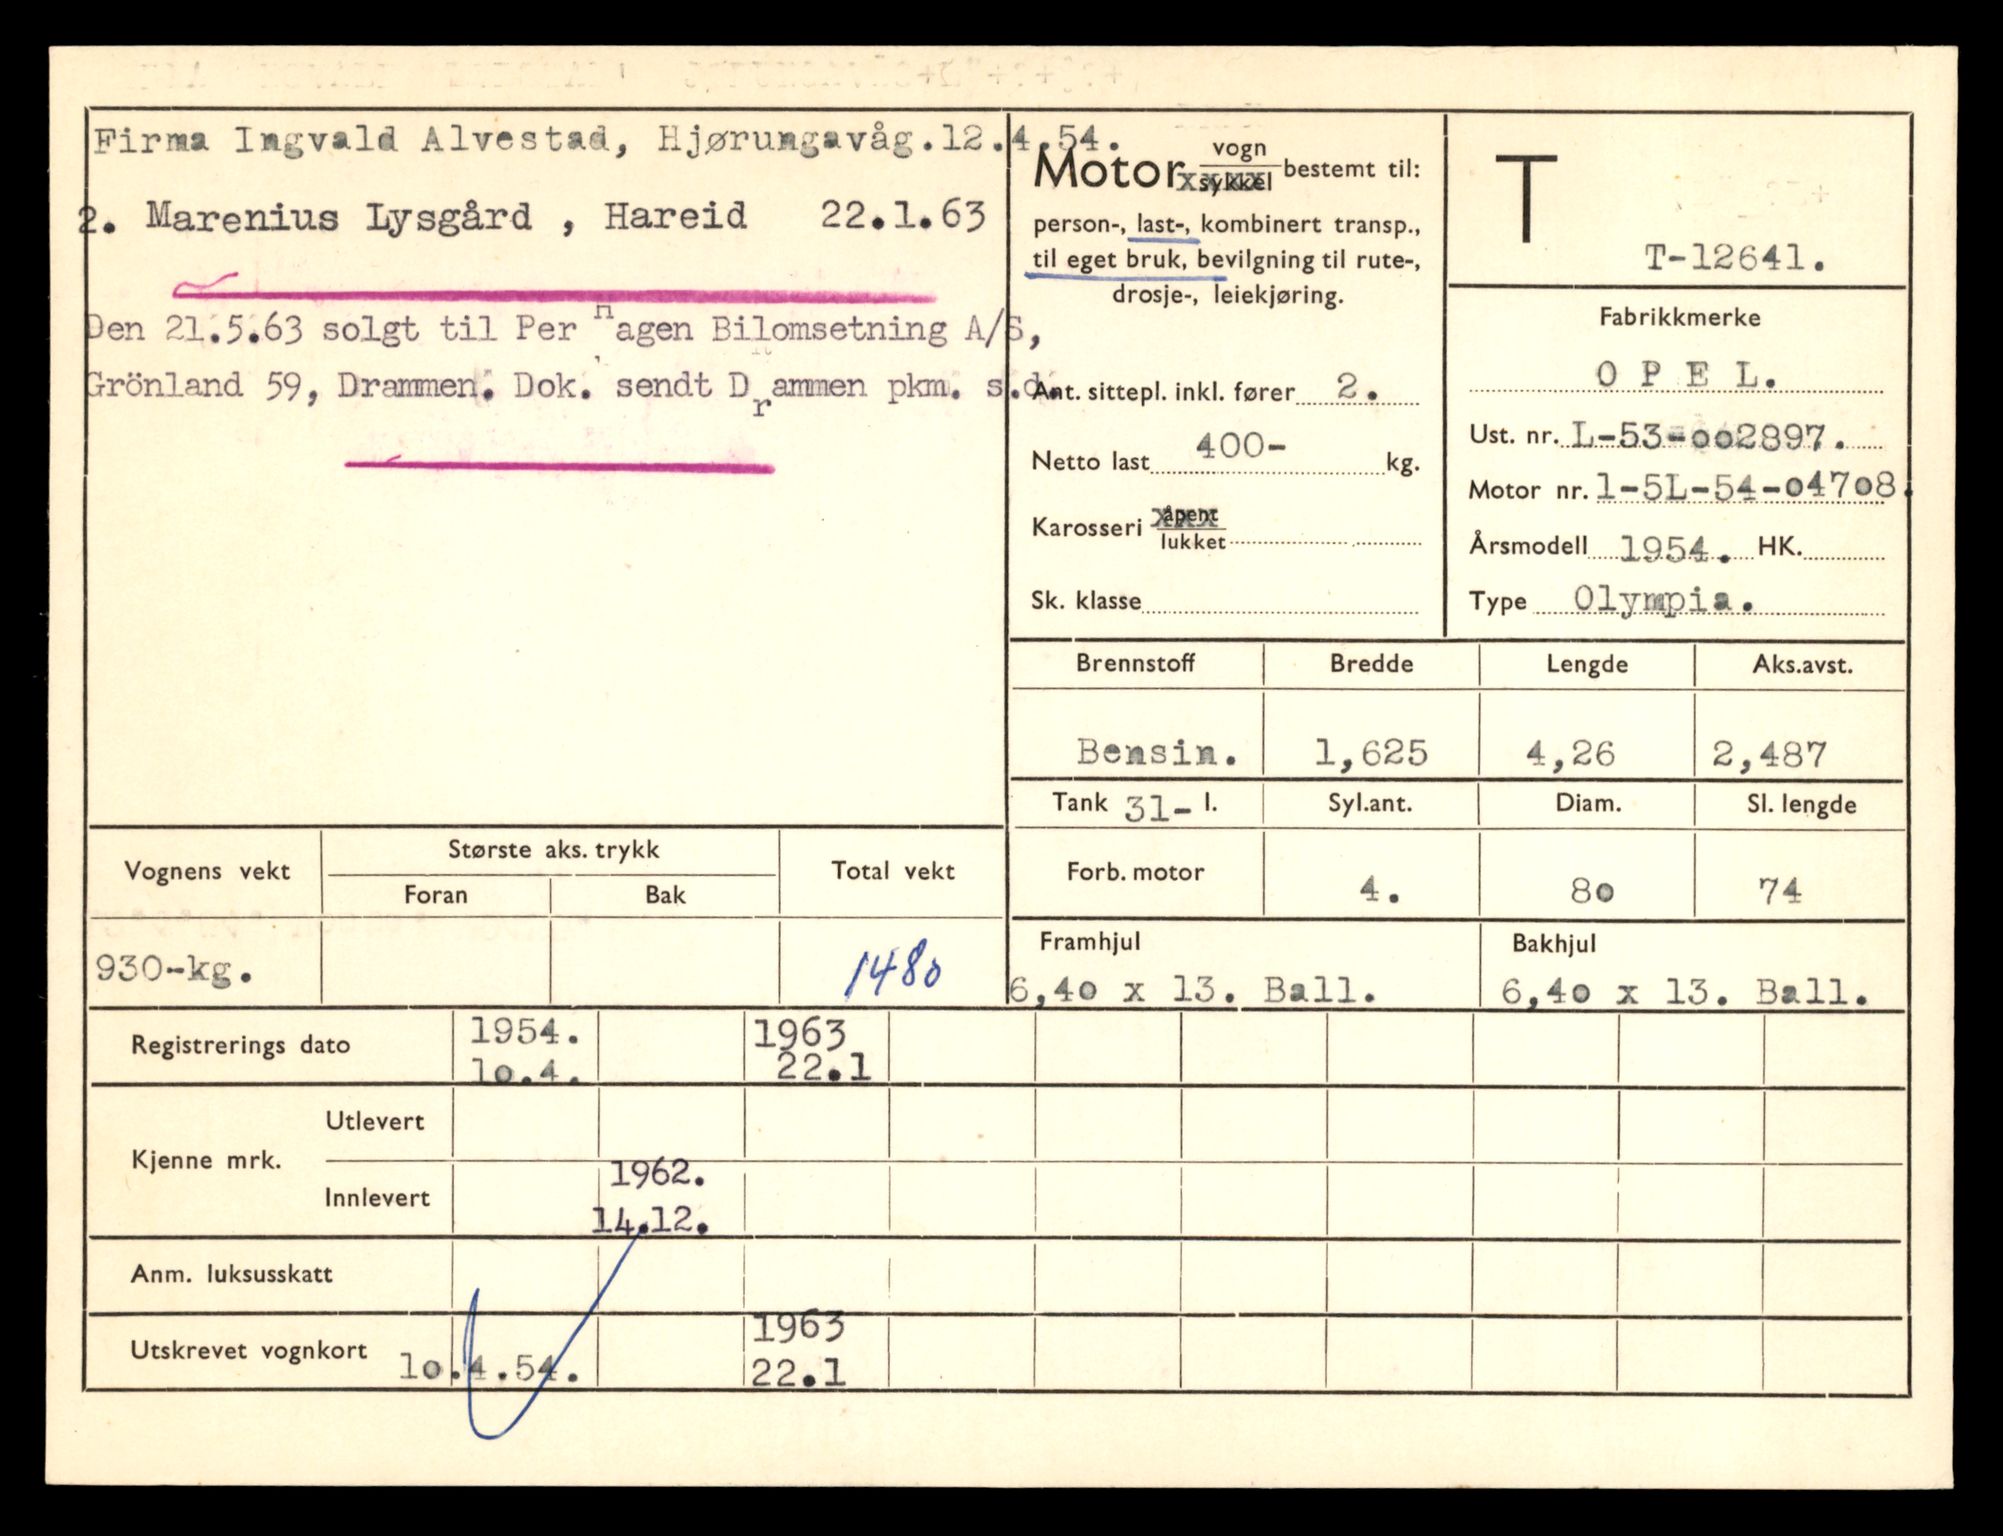 Firma Ingvald Alvestad, Hjørungavåg.12.4.54.
2. Marenius Lysgård , Hareid 22.1.63
Den 21.5.63 solgt til Per Hagen Bilomsetning A/S,
Grönland 59, Drammen. Dok. sendt Drammen pkm. s.d.
Motor vogn
sykkel bestemt til:
person-, last-, kombinert transp.,
til eget bruk, bevilgning til rute-,
drosje-, leiekjøring.
Ant. sittepl. inkl. fører 2.
Netto last 400- kg.
Karosseri åpent
lukket
Sk. klasse
T
T-12641.
Fabrikkmerke
O P E L.
Ust. nr. L-53-oo2897.
Motor nr. 1-5L-54-o47o8.
Årsmodell 1954. HK.
Type Olympia.
Brennstoff Bredde Lengde Aks.avst.
Bensin. 1,625 4,26 2,487
Tank 31- l. Syl.ant. Diam. Sl. lengde
Forb. motor 4. 8o 74
Framhjul Bakhjul
6,4o x 13. Ball. 6,4o x 13. Ball.
Vognens vekt Største aks. trykk Total vekt
Foran Bak
930-kg. 1480
Registrerings dato 1954. 1963
1o.4. 22.1
Kjenne mrk. Utlevert
Innlevert 1962.
14.12.
Anm. luksusskatt
Utskrevet vognkort 1o.4.54. 1963
22.1